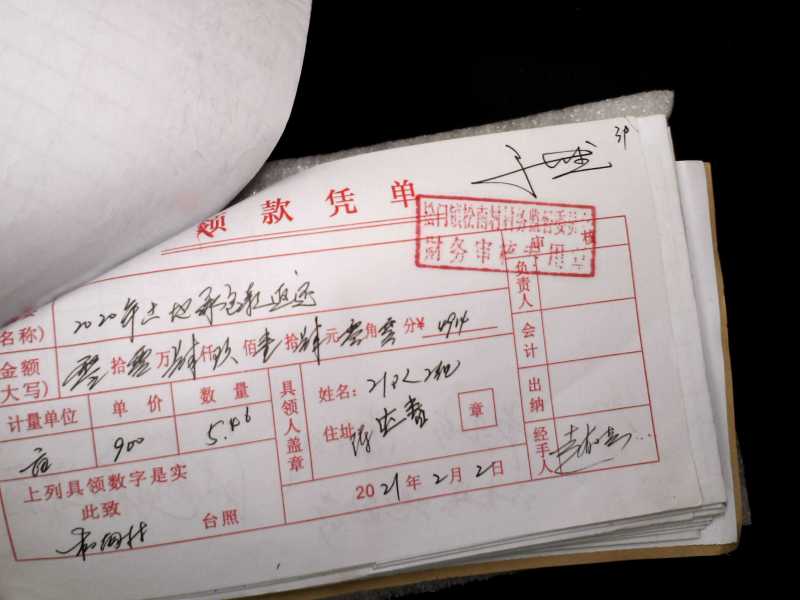 39
领款凭单
松门镇松南村村务监督委员
财务审核专用章
名称)
2020年土地承包款返还
审核
负责人
金额
大写)
零拾零万肆仟玖佰壹拾肆元零角零分¥4914
会计
计量单位 单价 数量
亩 900 5.46
具领人盖章
姓名:
住址
章
出纳
经手人
上列具领数字是实
此致
台照
2021年2月2日